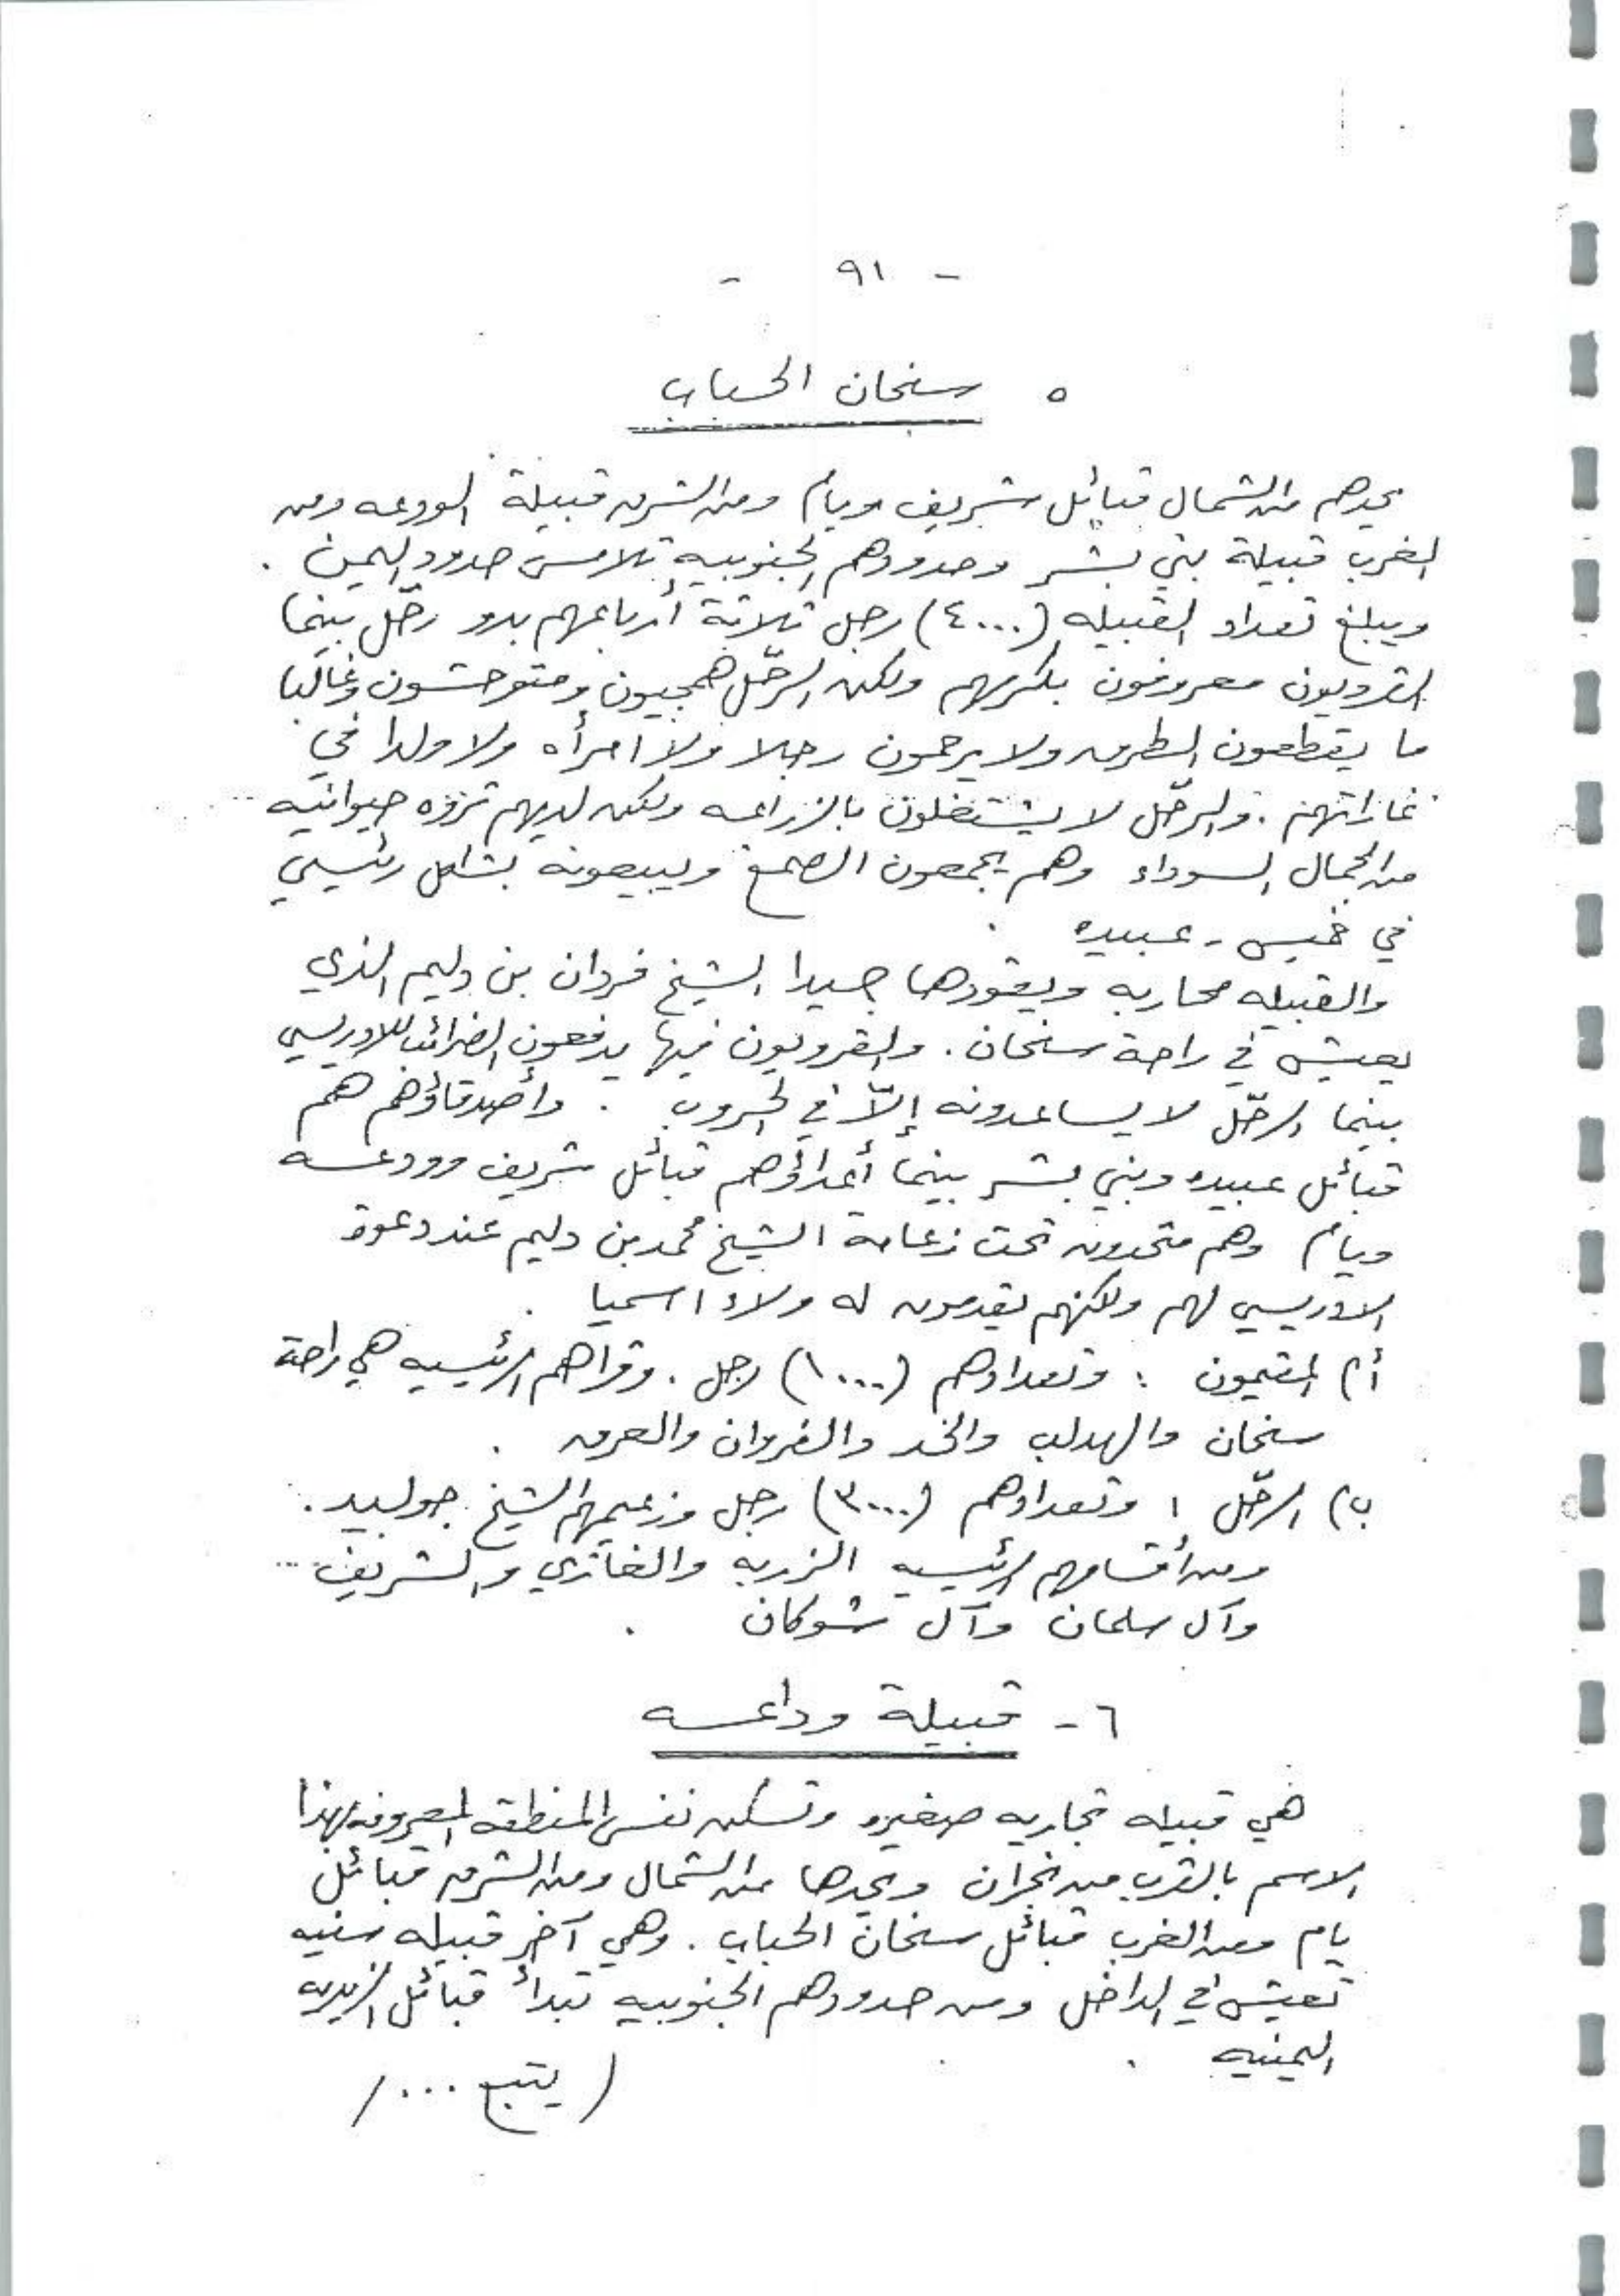 - ٩١ -
٥ سنحان الحباب
يحدهم من الشمال قبائل شريف ويام ومن الشرق قبيلة الودعه ومن
الغرب قبيلة بني بشر وحدودهم الجنوبيه تلامس حدود اليمن .
ويبلغ تعداد القبيله (٤٠٠٠) رجل ثلاثة أرباعهم بدو رحّل بينما
القرويون معروفون بكرمهم ولكن الرحّل همجيون ومتوحشون وغالبا
ما يقطعون الطرق ولا يرحمون رجلا ولا امرأه ولا ولدا في
غاراتهم . والرحّل لا يشتغلون بالزراعه ولكن لديهم ثروه حيوانيه
من الجمال السوداء وهم يجمعون الصمغ ويبيعونه بشكل رئيسي
في خميس - عبيده .
والقبيله محاربه ويقودها جيدا الشيخ فردان بن دليم الذي
يعيش في راحة سنحان . والقرويون فيها يدفعون الضرائب للادريسي
بينما الرحّل لا يساعدونه إلاّ في الحروب . وأصدقاؤهم هم
قبائل عبيده وبني بشر بينما أعداؤهم قبائل شريف وودعه
ويام وهم متحدون تحت زعامة الشيخ محمد بن دليم عند دعوة
الادريسي لهم ولكنهم يقدمون له ولاء اسميا .
أ) المقيمون : وتعدادهم (١٠٠٠) رجل . وقراهم الرئيسيه هي راحة
سنحان والهدلب والخد والفروان والعرق .
ب) الرحّل : وتعدادهم (٣٠٠٠) رجل وزعيمهم الشيخ جولبيد .
ومن أقسامهم الرئيسيه الزربه والغازي والشريف
وآل سلمان وآل شوكان .
٦ - قبيلة وداعه
هي قبيله تجاريه صغيره وتسكن نفس المنطقه المعروفه بهذا
الاسم بالقرب من نجران ويحدها من الشمال ومن الشرق قبائل
يام ومن الغرب قبائل سنحان الحباب . وهي آخر قبيله سنيه
تعيش في الداخل ومن حدودهم الجنوبيه تبدأ قبائل الزيديه
اليمنيه .
( يتبع ... /